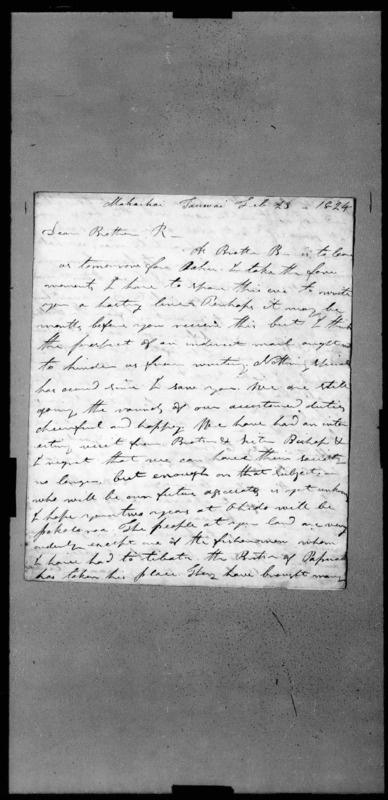 Feb 23 - 1824
Dear Brother R -
As Brother B. is to leave
us tomorrow for Oahu I take the few
moments I have to spare this eve to write
you a hasty line. Perhaps it may be
months before you receive this but I think
the prospect of an indirect mail ought not
to hinder us from writing. Nothing special
has occurred since I saw you. We are still
going the rounds of our accustomed duties
cheerful and happy. We have had an inter
esting visit from Brother & Sister Bishop &
I regret that we can have their society
no longer, but enough on that subject
who will be our future associates is yet unknown
I hope your two years at will be
The people at your land are very
orderly except one of the fishermen whom
I have had to the Brother of
has taken his place. They have brought many